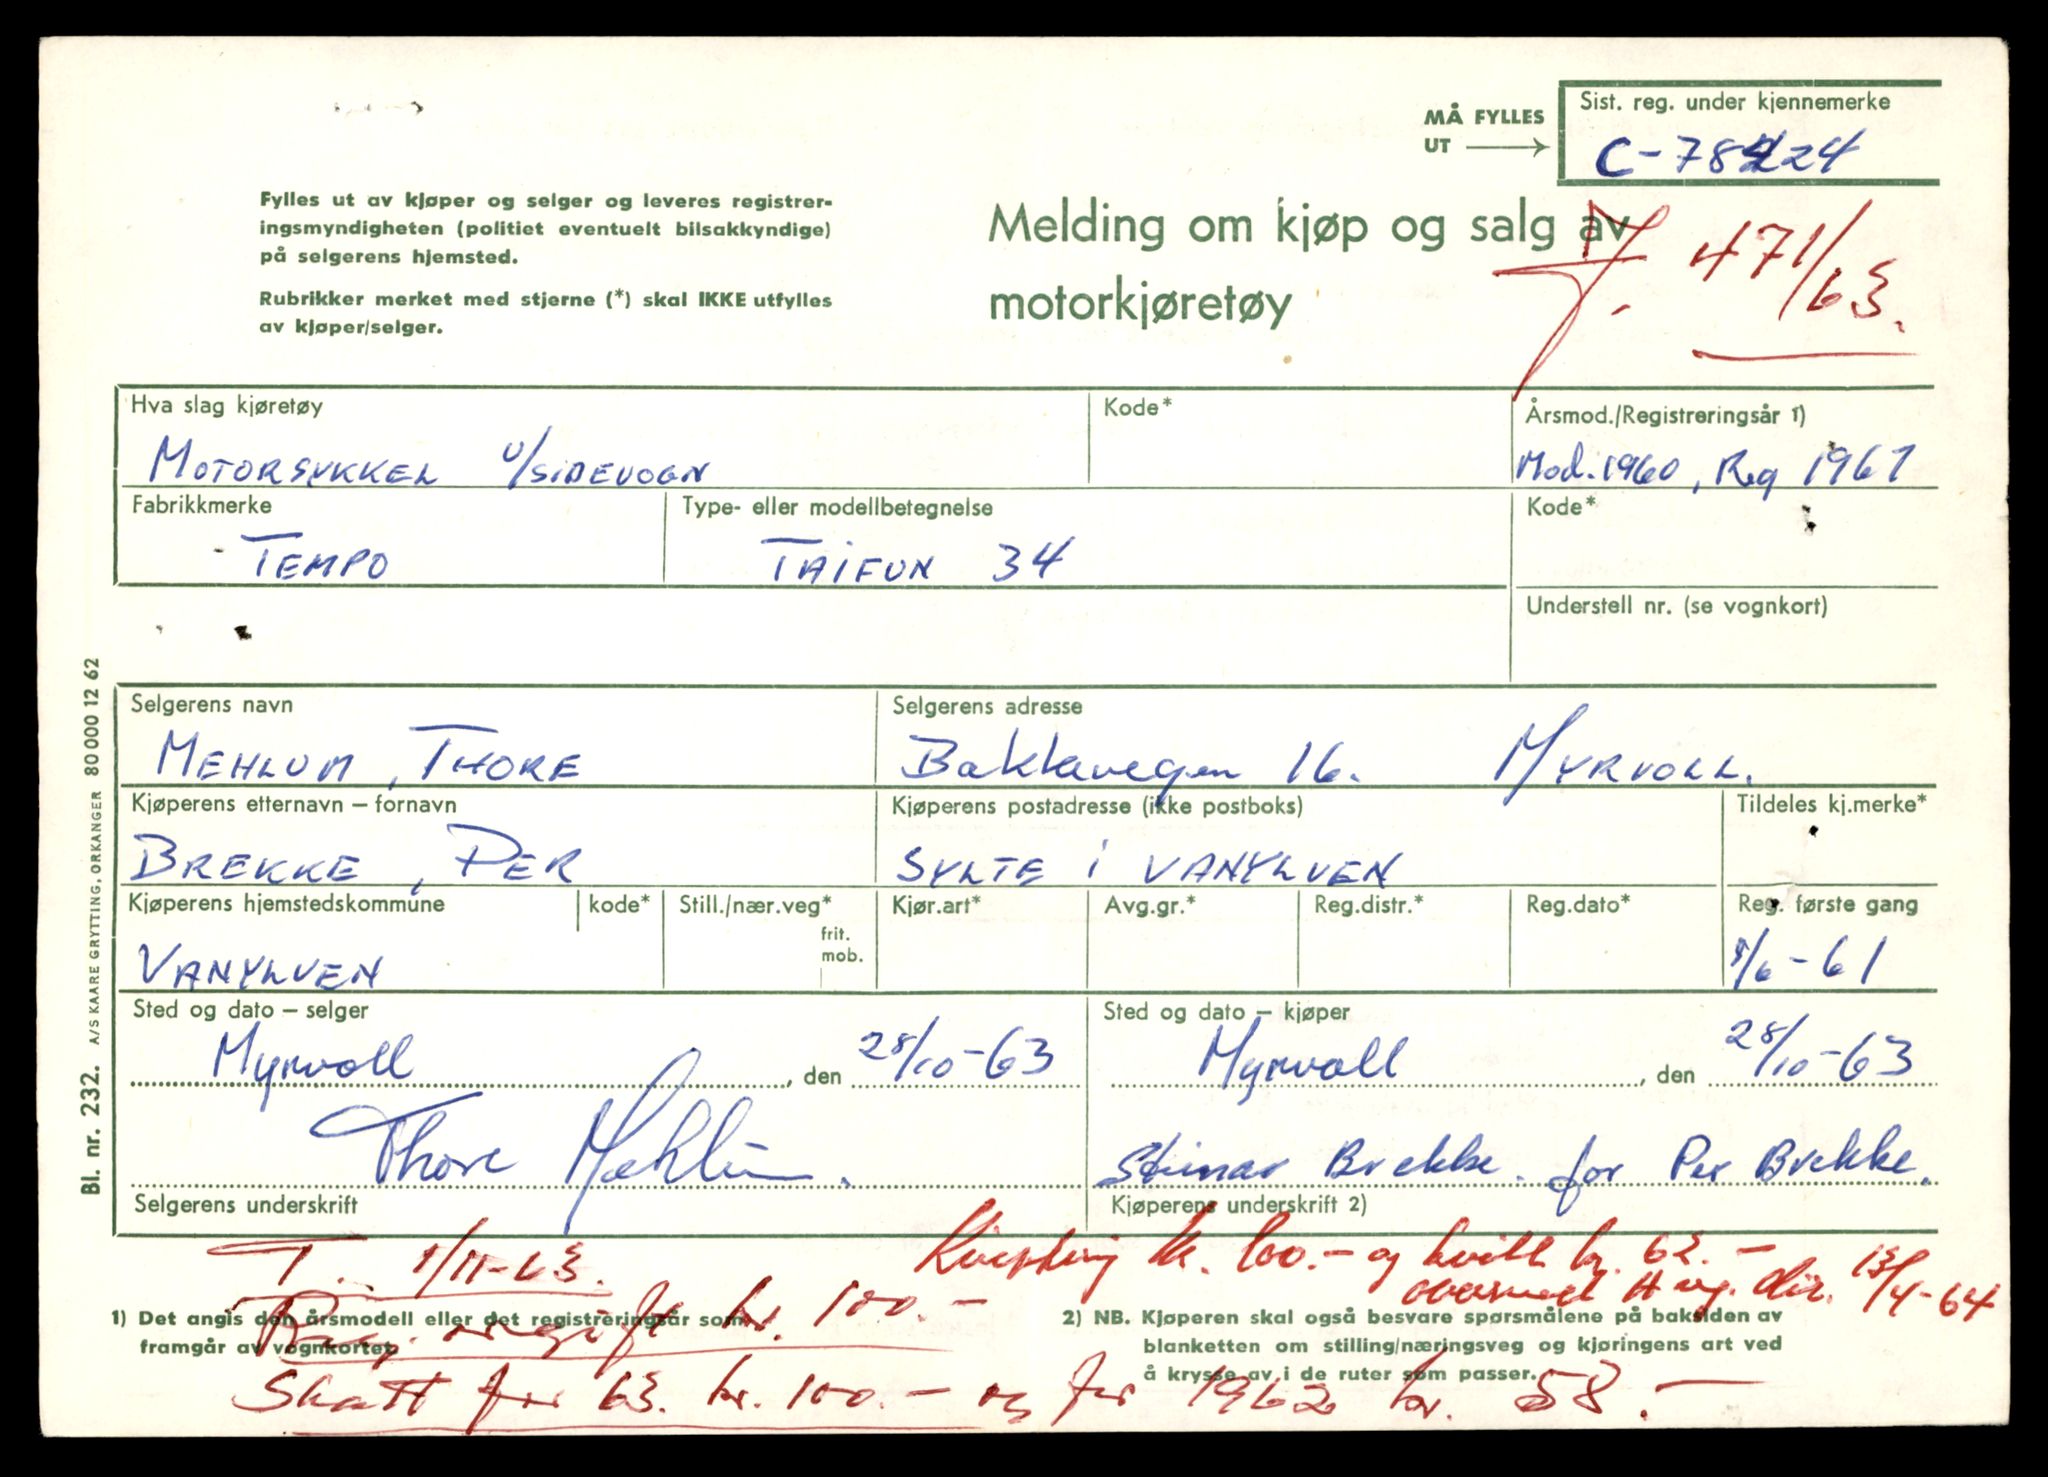 MÅ FYLLES
UT
Sist. reg. under kjennemerke
C-78224
Fylles ut av kjøper og selger og leveres registrer-
ingsmyndigheten (politiet eventuelt bilsakkyndige)
på selgerens hjemsted.
Rubrikker merket med stjerne (*) skal IKKE utfylles
av kjøper/selger.
Melding om kjøp og salg av
motorkjøretøy
J. 471/63.
Hva slag kjøretøy
Kode*
Årsmod./Registreringsår 1)
MOTORSYKKEL U/SIDEVOGN
Mod. 1960, Reg 1961
Fabrikkmerke
Type- eller modellbetegnelse
Kode*
TEMPO
TAIFUN 34
Understell nr. (se vognkort)
Selgerens navn
Selgerens adresse
MEHLUM, THORE
Bakkevegen 16. MYRVOLL.
Kjøperens etternavn – fornavn
Kjøperens postadresse (ikke postboks)
Tildeles kj.merke*
BREKKE, PER
SYLTE I VANYLVEN
Kjøperens hjemstedskommune
kode*
Still./nær.veg*
frit.
mob.
Kjør.art*
Avg.gr.*
Reg.distr.*
Reg.dato*
Reg. første gang
VANYLVEN
/6-61
Sted og dato – selger
Sted og dato – kjøper
Myrvoll, den 28/10-63
Myrvoll, den 28/10-63
Thore Mehlum.
Steinar Brekke. for Per Brekke.
Selgerens underskrift
Kjøperens underskrift 2)
T. 1/11-63.
kr. 100.- og kr. 62.-
13/4-64
Reg. avgift kr. 100.-
1) Det angis den årsmodell eller det registreringsår som
framgår av vognkortet
2) NB. Kjøperen skal også besvare spørsmålene på baksiden av
blanketten om stilling/næringsveg og kjøringens art ved
å krysse av i de ruter som passer.
Skatt for 63. kr. 100.- og for 1962 kr. 58.-
Bl. nr. 232. A/S KAARE GRYTTING, ORKANGER 80 000 12 62